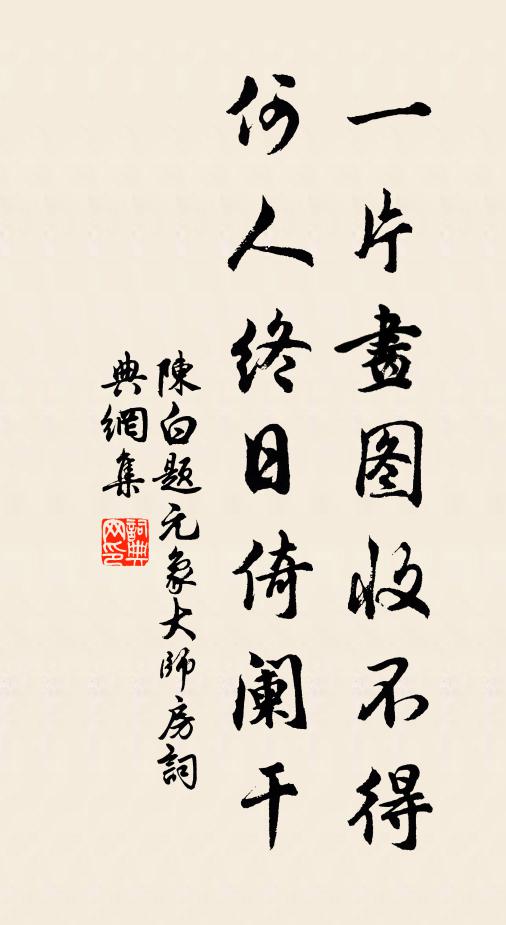 一片畫图收不得
何人终日倚阑干
陳白题元象大師房詞
典網集
詞典
网印